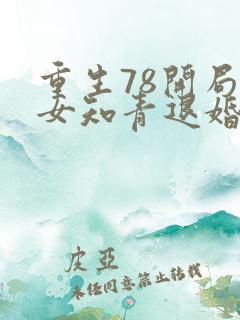 重生78开局
女知青退婚
皮亚
未经同意禁止转载